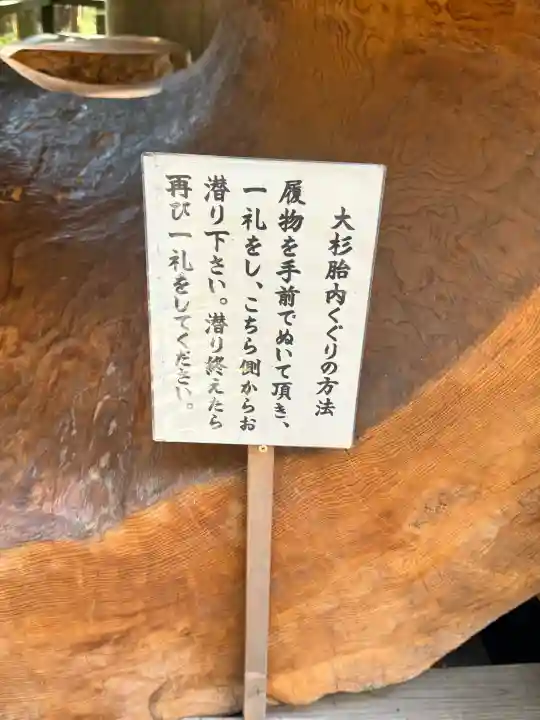 大杉胎内くぐりの方法
履物を手前でぬいて頂き、
一礼をし、こちら側からお
潜り下さい。潜り終えたら
再び一礼をしてください。